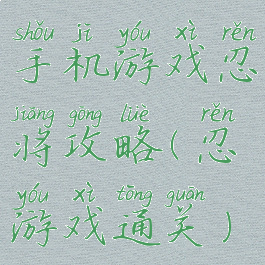 shǒu jī yóu xì rěn
手机游戏忍
jiāng gōng lüè rěn
将攻略(忍
yóu xì tōng guān
游戏通关)